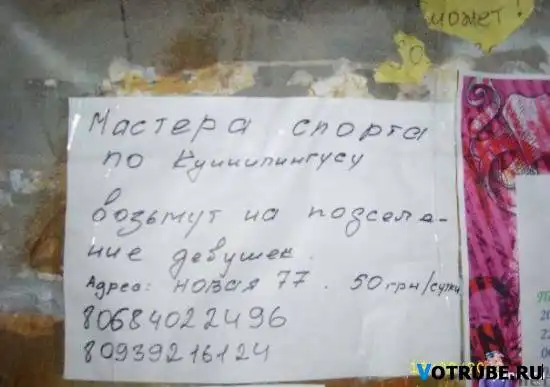 может!
Мастера спорта
по Куннилингусу
возьмут на подселе-
ние девушек.
Адрес: новая 77. 50 грн/сутки
80684022496
80939216124
VOTRUBE.RU